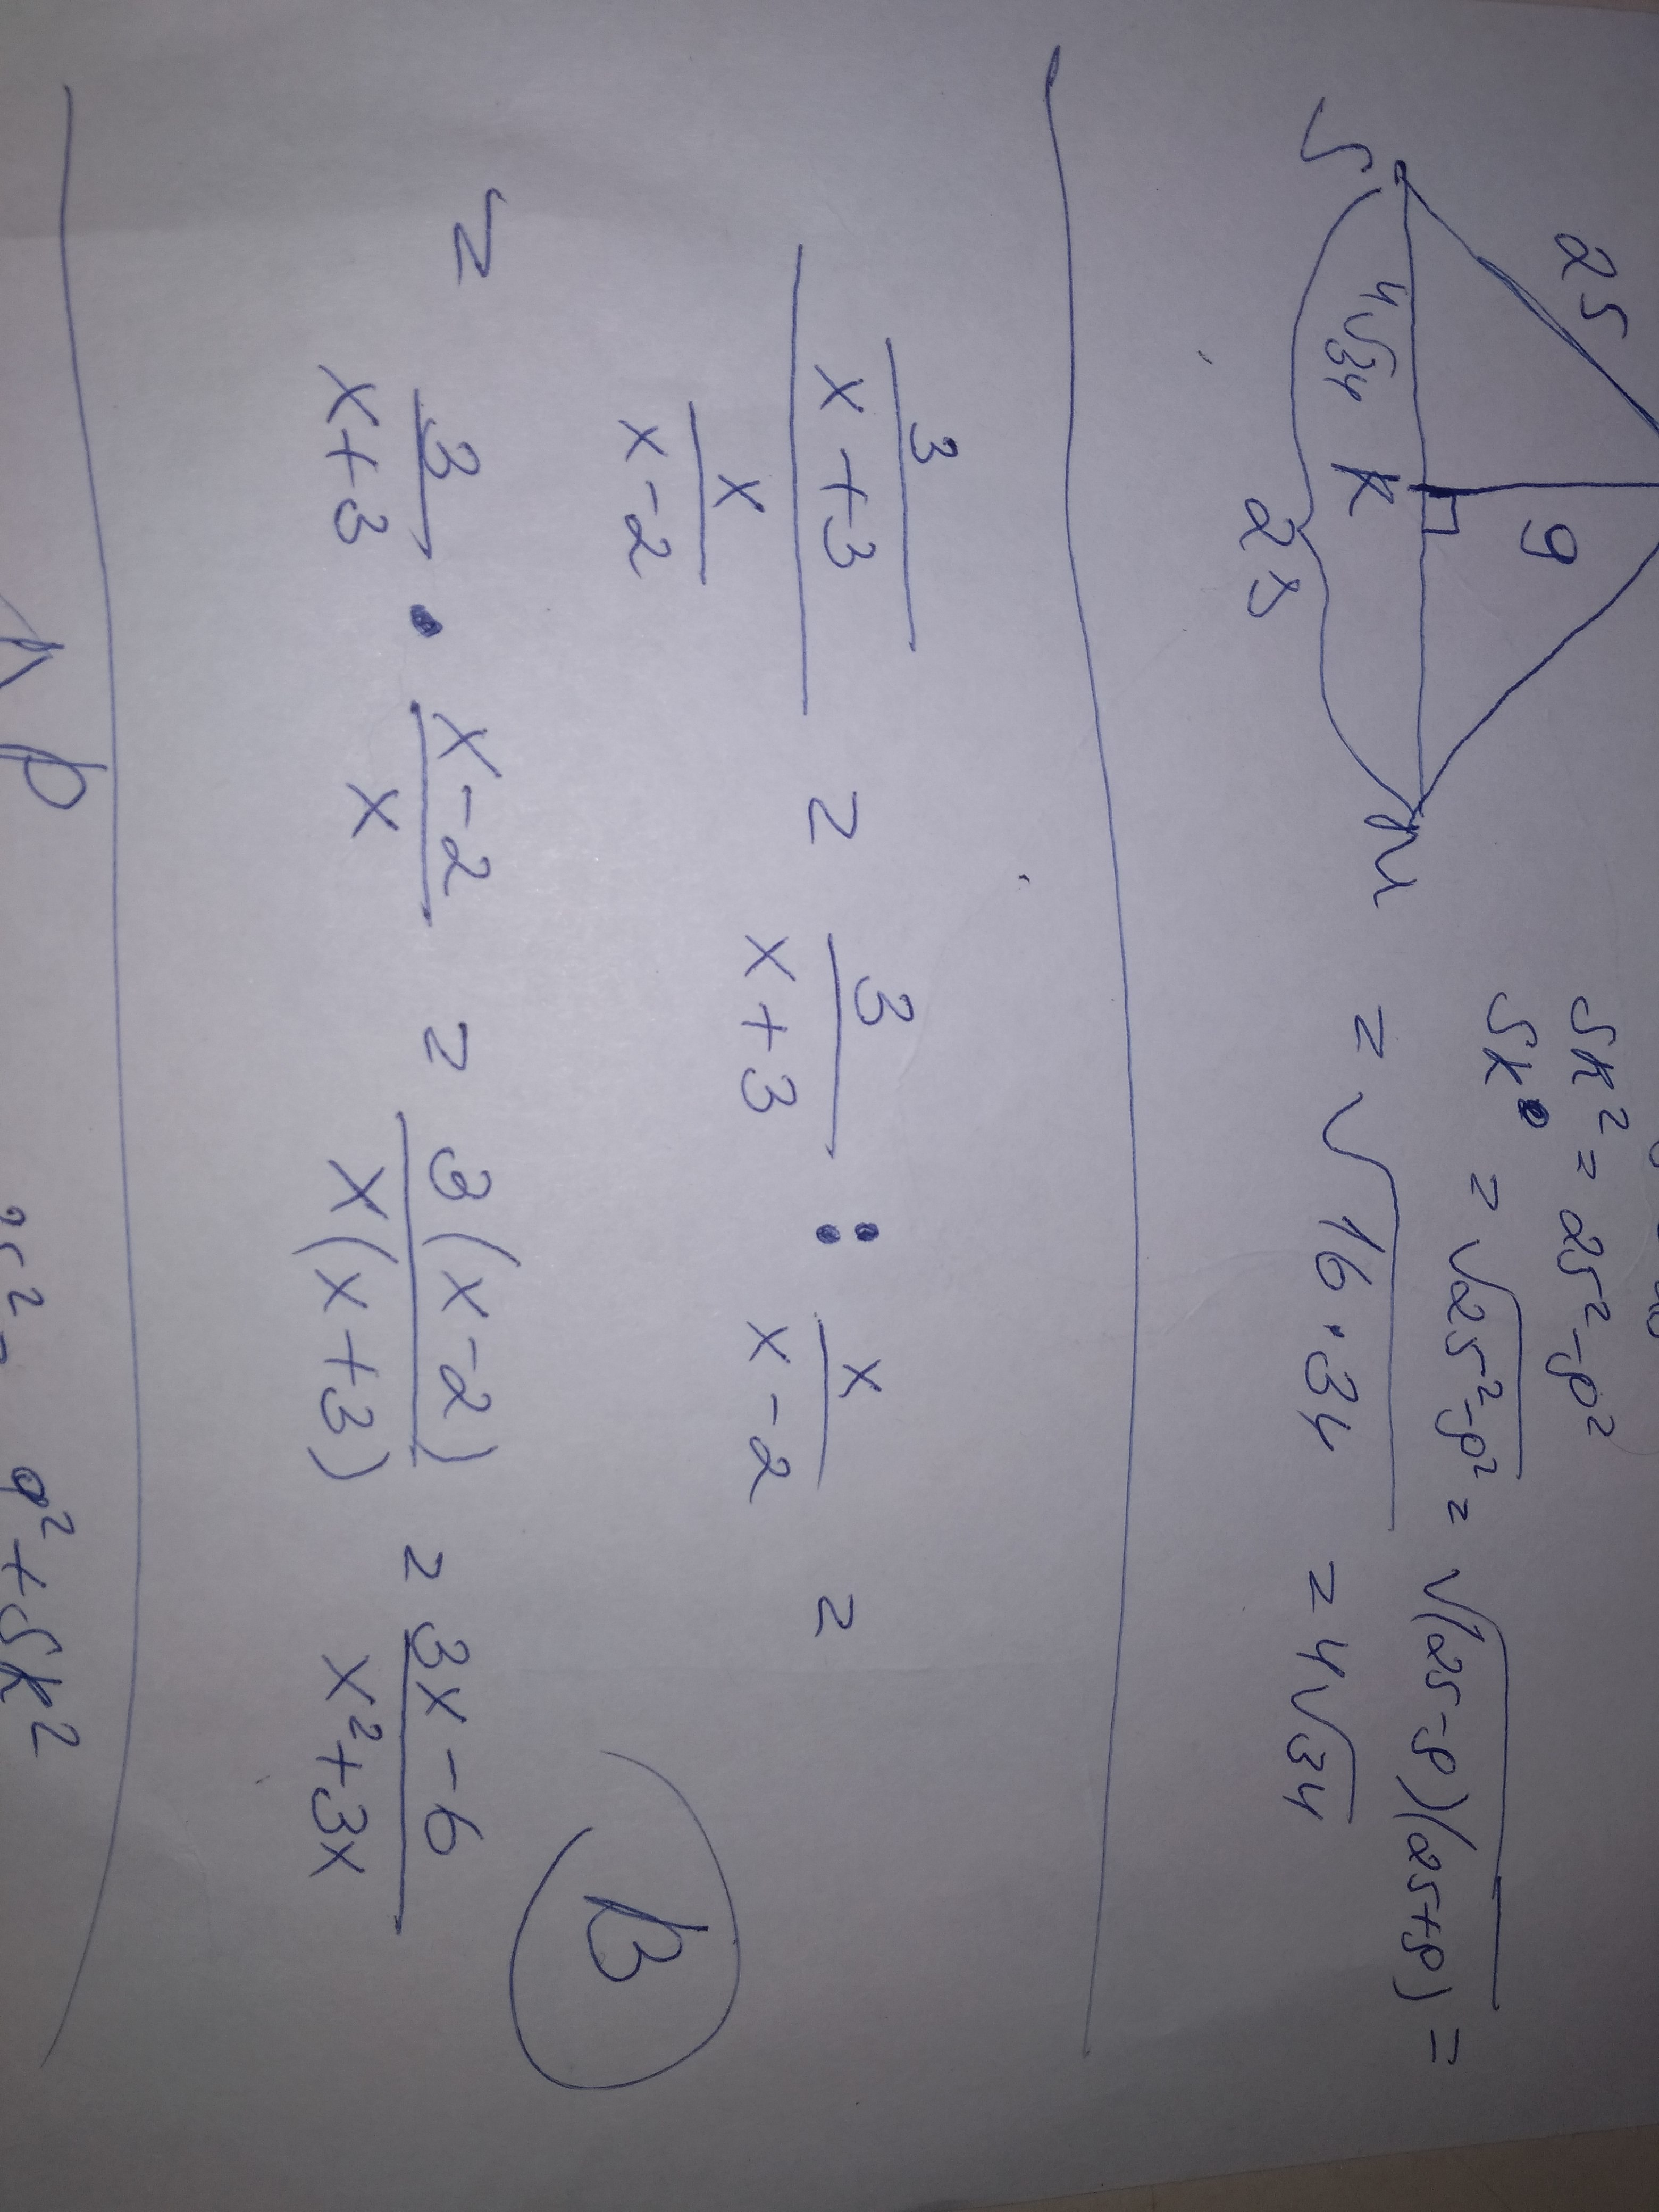 25
9
S 4√34 K M
23
SK² = 25² - 9²
SK = √25² - 9² = √(25-9)(25+9) =
= √16 · 34 = 4√34
3/(x+3) / x/(x-2) = 3/(x+3) : x/(x-2) =
= 3/(x+3) · (x-2)/x = 3(x-2)/x(x+3) = (3x-6)/(x²+3x)
B
p
9² + SK²